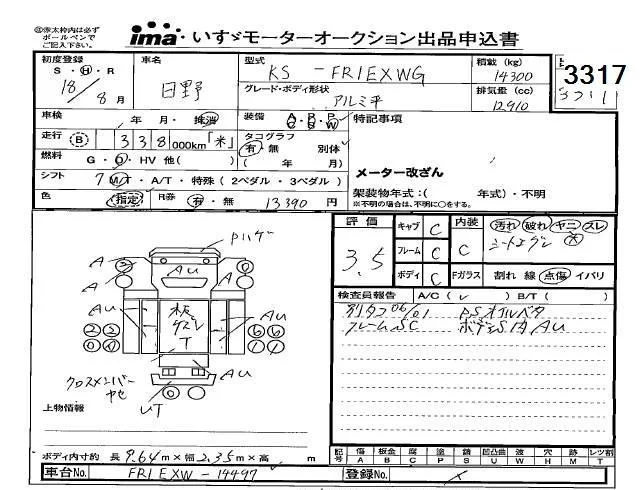 ㊟赤太枠内は必ず
ボールペンで
ご記入下さい。
ima・いすゞモーターオークション出品申込書
初度登録 車名 型式 KS - FR1EXWG 積載 (kg) 14300
S・H・R 18/8月 日野 グレード・ボディ形状 アルミ平 排気量 (cc) 12910
3317
車検 年 月・抹消 装備 A・P・P C・S・W 特記事項
走行 B 338,000km「米」 タコグラフ 有・無 別体
燃料 G・D・HV 他( ) ( 年 月) メーター改ざん
シフト 7 M/T・A/T・特殊 (2ペダル・3ペダル) 架装物年式:( 年式)・不明
※不明の場合は、不明に○をする。
色 指定 R券 有・無 13390 円
評価 3.5
キャブ C 内装 C 汚れ 破れ ヤニ スレ
フレーム C
ボディ C Fガラス 割れ 線 点傷 イバリ
検査員報告 A/C ( レ ) B/T ( )
別タコ06/01 PSオイルベタ
フレームSC ボデーS内AU
Pハゲ
A A AU
A
板
T
AU
クロスメンバー
ヤセ
UT
上物情報
ボディ内寸約 長 9.64m×幅 2.35m×高 m
記号 傷A 板金B 腐C 塗P 錆S 凹凸曲U 波W 穴H 跡X 跡M レツ割T
車台No. FR1EXW-19497 登録No.